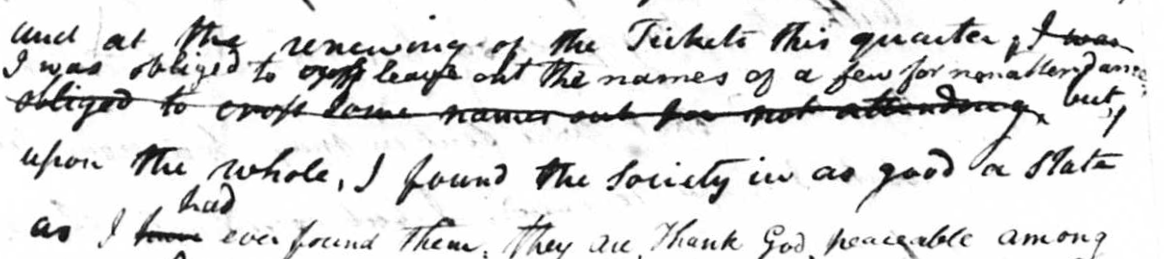 and at the renewing of the Tickets this quarter, I was
I was obliged to cross leave out the names of a few for nonattendance,
obliged to cross some names out for not attending, but,
upon the whole, I found the Society in as good a state
had
as I have ever found them. they are, thank God, peaceable among